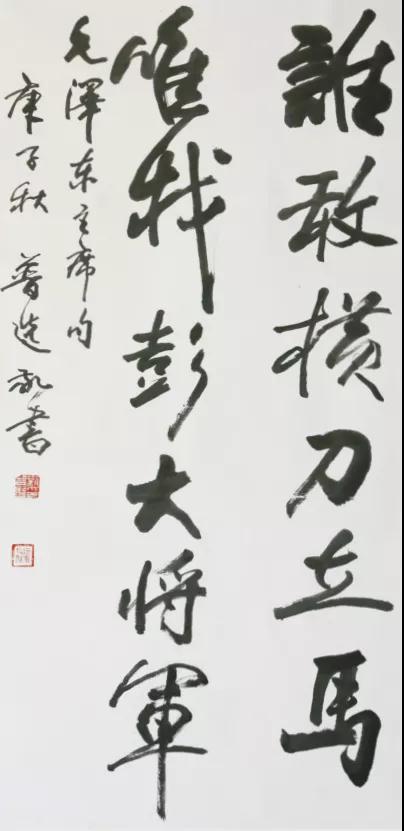 誰敢橫刀立馬
唯我彭大將軍
毛澤东主席句
庚子秋 普选敬書